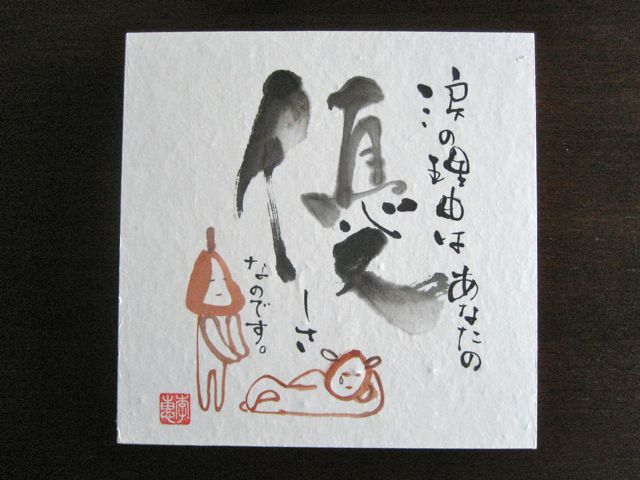 涙の理由は あなたの
優しさ
なのです。